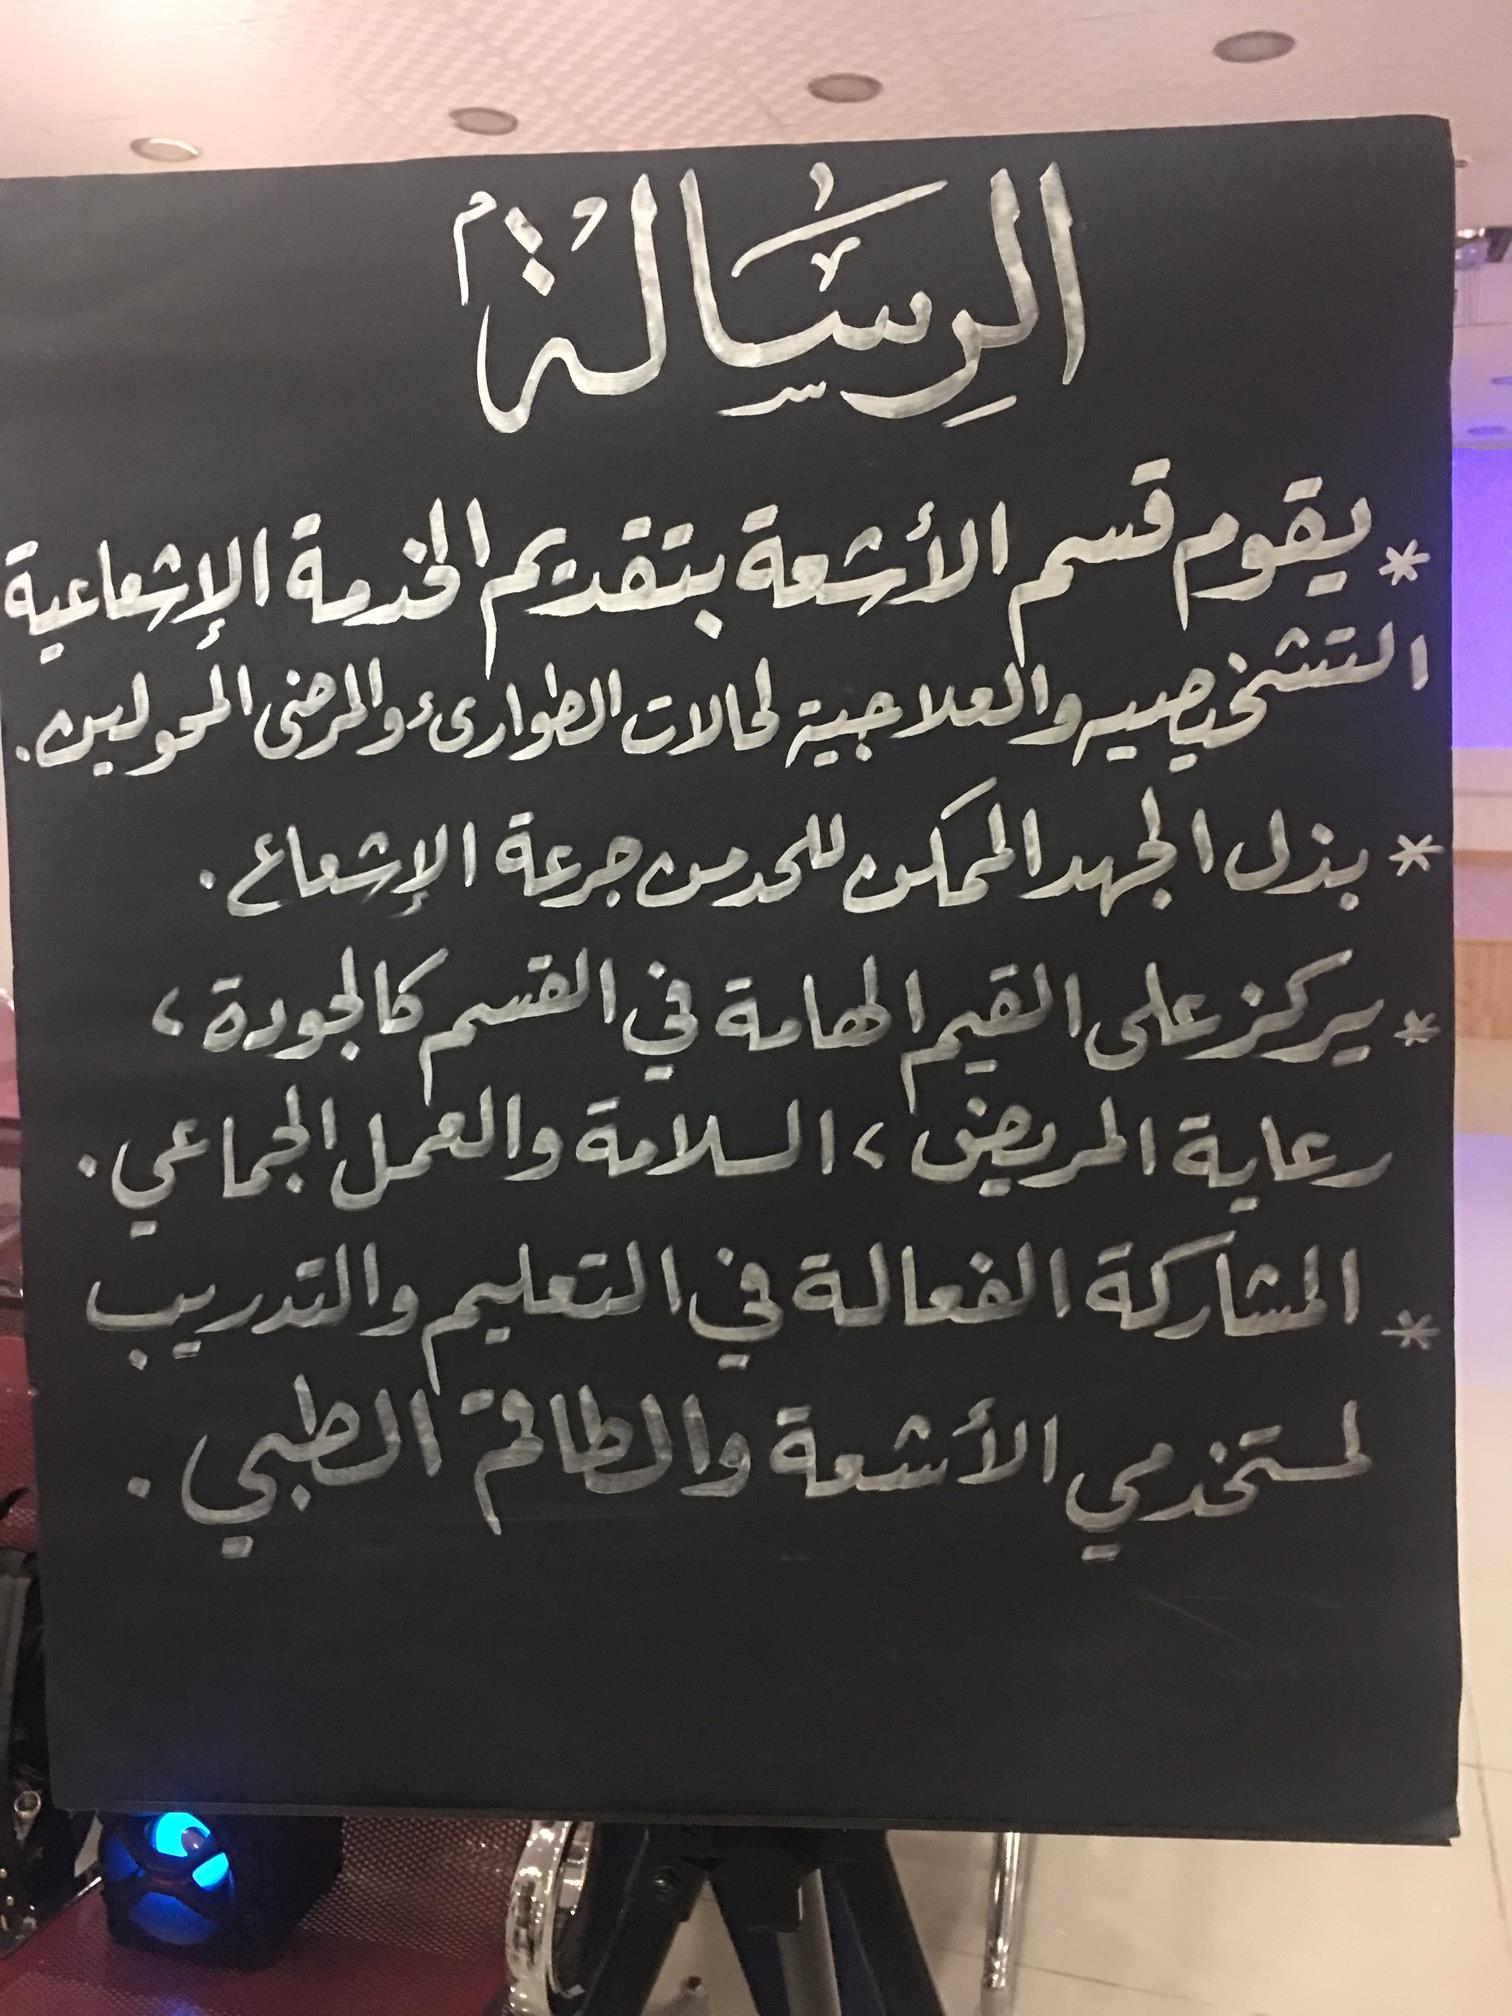 الرِسَالة
* يقوم قسم الأشعة بتقديم الخدمة الإشعاعية
التشخيصيه والعلاجية لحالات الطوارىء والمرضى المحولين.
* بذل الجهد الممكن للحد من جرعة الإشعاع.
* يركز على القيم الهامة في القسم كالجودة،
رعاية المريض، السلامة والعمل الجماعي.
* المشاركة الفعالة في التعليم والتدريب
لمستخدمي الأشعة والطاقم الطبي.